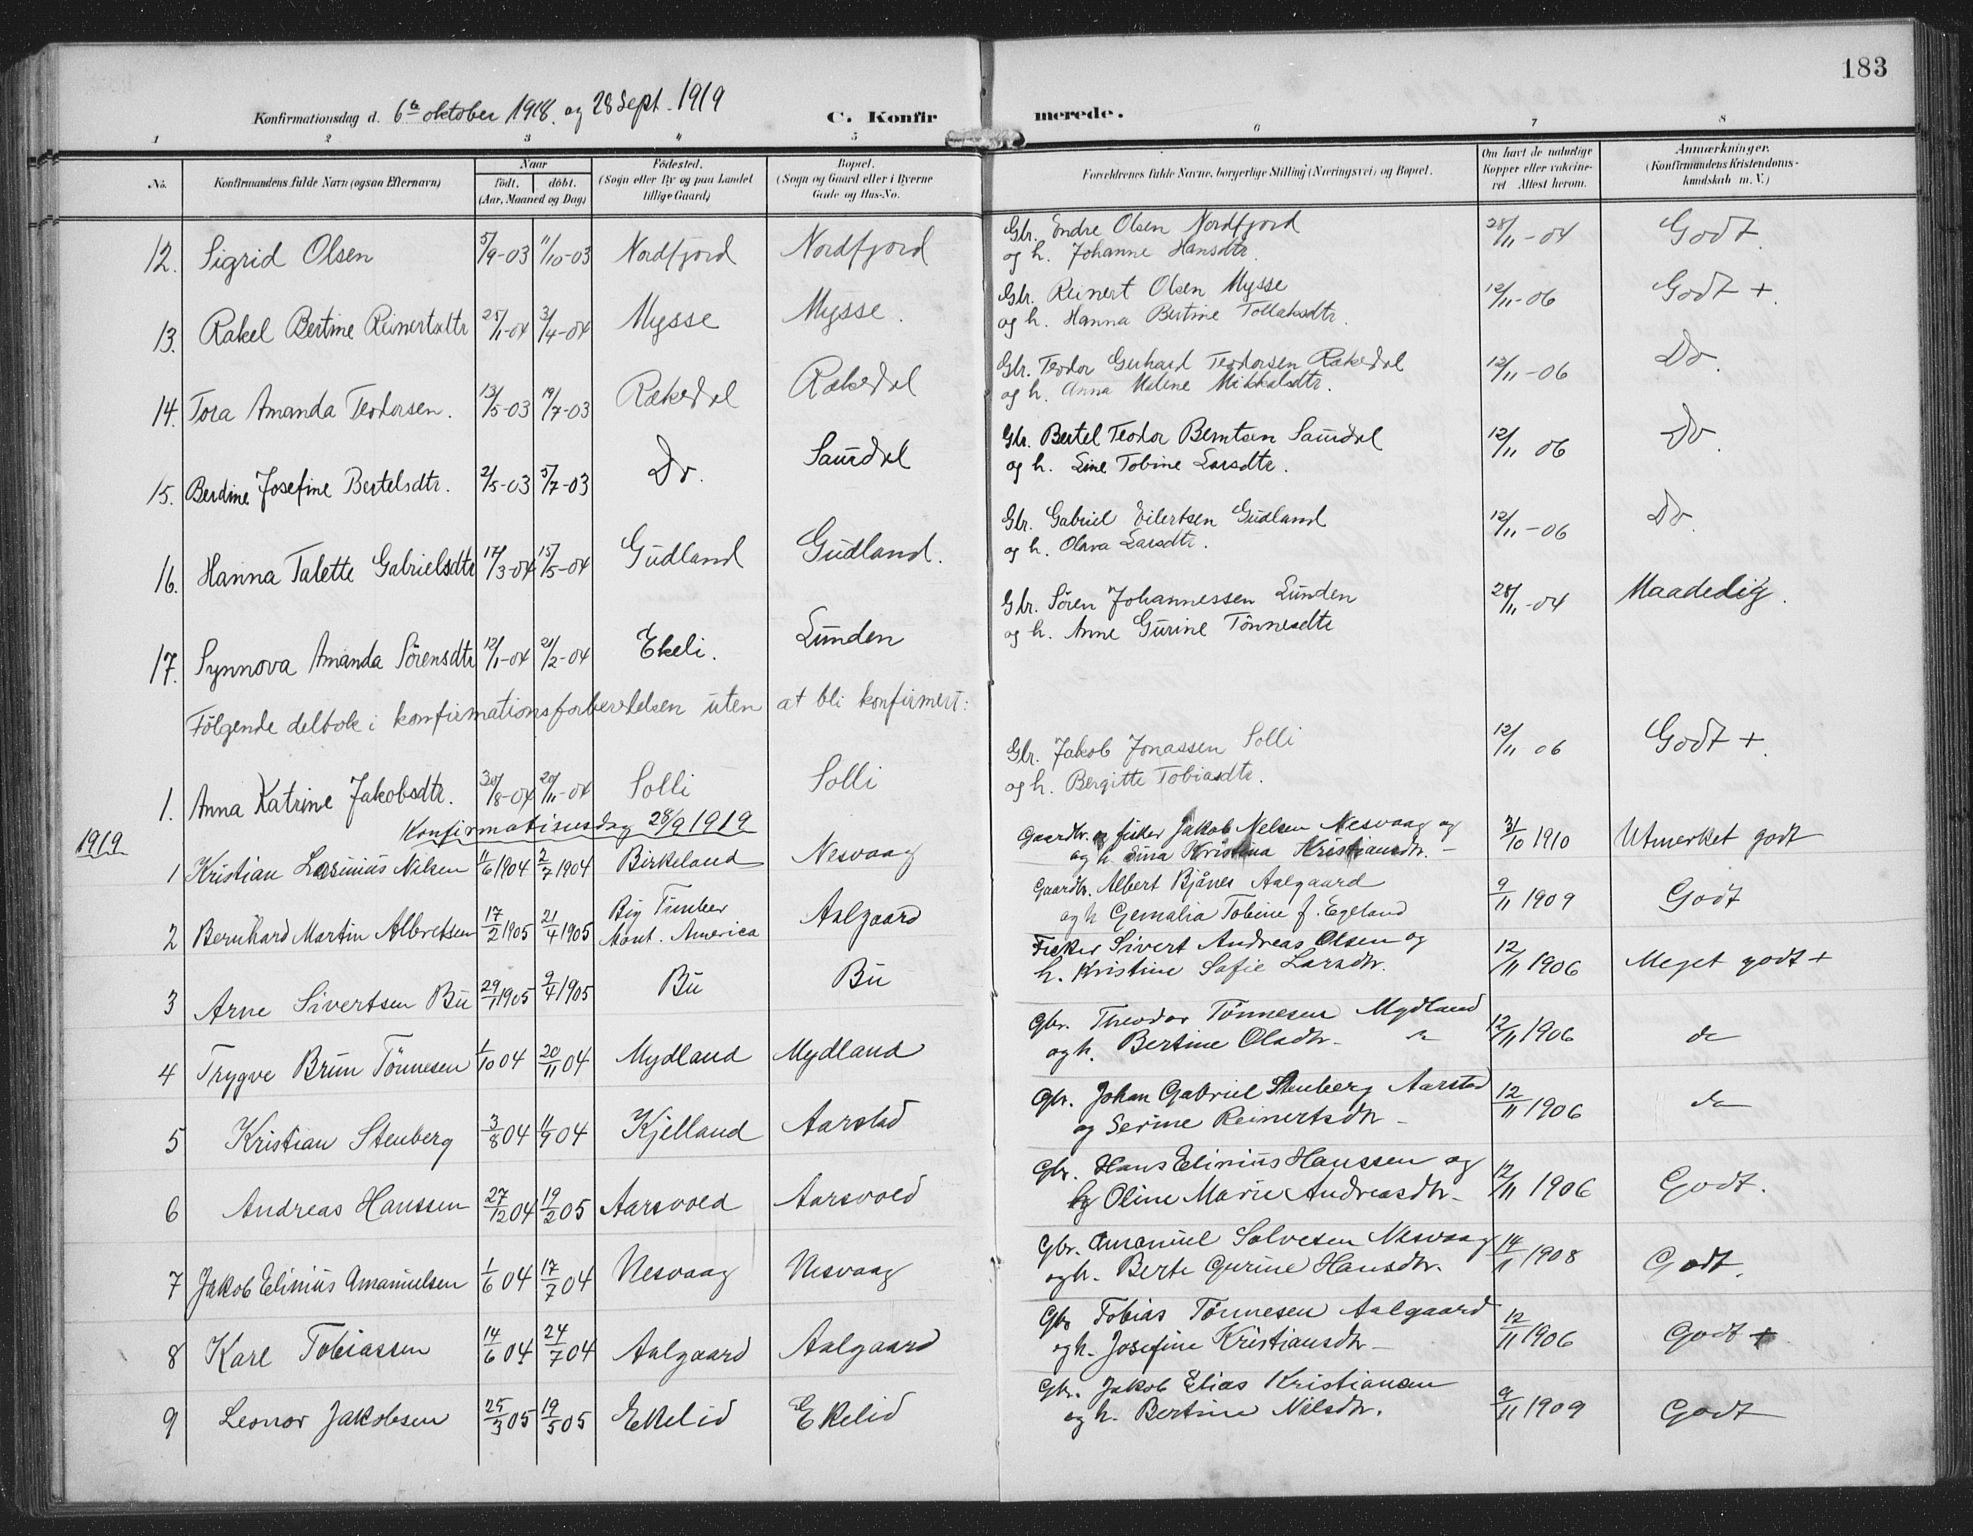 183
Konfirmationsdag d. 6te oktober 1918. og 28 Sept. 1919
C. Konfirmerede.
1 2 3 4 5 6 7 8
No. Konfirmandens fulde Navn (ogsaa Efternavn) Naar født. døbt. (Aar, Maaned og Dag) Fødested. (Sogn eller By og paa Landet tillige Gaard) Bopæl. (Sogn og Gaard eller i Byerne Gade og Hus-No. Forældrenes fulde Navne, borgerlige Stilling (Næringsvei) og Bopæl. Om havt de naturlige Kopper eller vakcineret. Attest herom. Anmærkninger. (Konfirmandens Kristendomskundskab m. V.)
12. Sigrid Olsen 5/9-03 11/10-03 Nordfjord Nordfjord Gbr. Endre Olsen Nordfjord 28/11-04 Godt
og h. Johanne Hansdtr.
13. Rakel Bertine Reinertsdtr 25/1-04 3/4-04 Mysse Mysse. Gbr. Reinert Olsen Mysse 12/11-06 Godt +.
og h. Hanna Bertine Tollaksdtr.
14. Tora Amanda Teodorsen. 13/5-03 19/7-03 Rækedal Rækedal Gbr. Teodor Gerhard Teodorsen Rækedal 12/11-06 Do.
og h. Anna Malene Mikkalsdtr.
15. Berdine Josefine Bertelsdtr. 2/5-03 5/7-03 Do. Saurdal Gbr. Bertel Teodor Berntsen Saurdal 12/11 06 Do.
og h. Line Tobine Larsdtr.
16. Hanna Talette Gabrielsdtr 17/3-04 15/5-04 Gudland Gudland. Gbr. Gabriel Eilertsen Gudland 12/11-06 Do.
og h. Olava Larsdtr.
17. Synnova Amanda Sörensdtr 12/1-04 21/2-04 Ekeli. Lunden Gbr. Sören Johannessen Lunden 28/11-04 Maadelig.
og h. Anne Gurine Tönnesdtr
Fölgende deltok i konfirmationsforberedelsen uten at bli konfirmert:
1. Anna Katrine Jakobsdtr. 30/8-04 20/11-04 Solli Solli Gbr. Jakob Jonassen Solli 12/11 06 Godt +.
og h. Bergitte Tobiasdtr.
1919 Konfirmationsdag 28/9 1919
1 Kristian Lasinius Nilsen 11/6 1904 2/7 1904 Birkeland Nesvaag Gaardbr. og fisker Jakob Nelsen Nesvaag og 31/10 1910 Utmerket godt
og h. Sina Kristina Kristiansdtr.
2 Bernhard Martin Albretsen 17/2 1905 21/4 1905 Big Timber Mont. America Aalgaard Gaardbr. Albert Bjånes Aalgaard 9/11 1909 Godt
og h Gemalia Tobine f. Egeland
3 Arne Sivertsen Bu 29/1 1905 9/4 1905 Bu Bu Fisker Sivert Andreas Olsen og 12/11 1906 Meget godt +
h. Kristine Sofie Larsdtr.
4 Trygve Brun Tönnesen 1/10 04 20/11 04 Mydland Mydland Gbr. Theodor Tönnesen Mydland 12/11 1906 do
og h. Bertine Olsdtr.
5 Kristian Stenberg 3/8 04 11/9 04 Kjelland Aarstad Gbr. Johan Gabriel Stenberg Aarstad 12/11 1906 do
og Serine Reinertsdtr
6 Andreas Hanssen 27/12 04 19/2 05 Aarsvold Aarsvold Gbr. Hans Elinius Hanssen og 12/11 1906 Godt.
h Oline Marie Andreasdtr
7 Jakob Elinius Amanuelsen 1/6 04 17/7 04 Nesvaag Nesvaag Gbr. Amanuel Salvesen Nesvaag 14/1 1908 Godt.
og h. Berte Gurine Hansdtr.
8 Karl Tobiassen 14/6 04 24/7 04 Aalgaard Aalgaard Gbr Tobias Tönnesen Aalgaard 12/11 1906 Godt +
og h. Josefine Kristiansdtr
9 Leonor Jakobsen 25/3 05 19/5 05 Ekelid Ekelid Gbr. Jakob Elias Kristiansen 9/11 1909 Godt
og h. Bertine Nilsdtr.